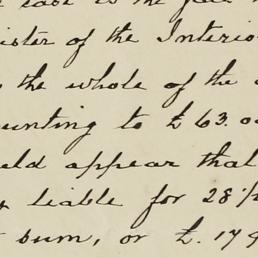 case is the
ister of the Interio
the whole of the
unting to £63.0
eld appear that
liable for 28
sum, or £.179